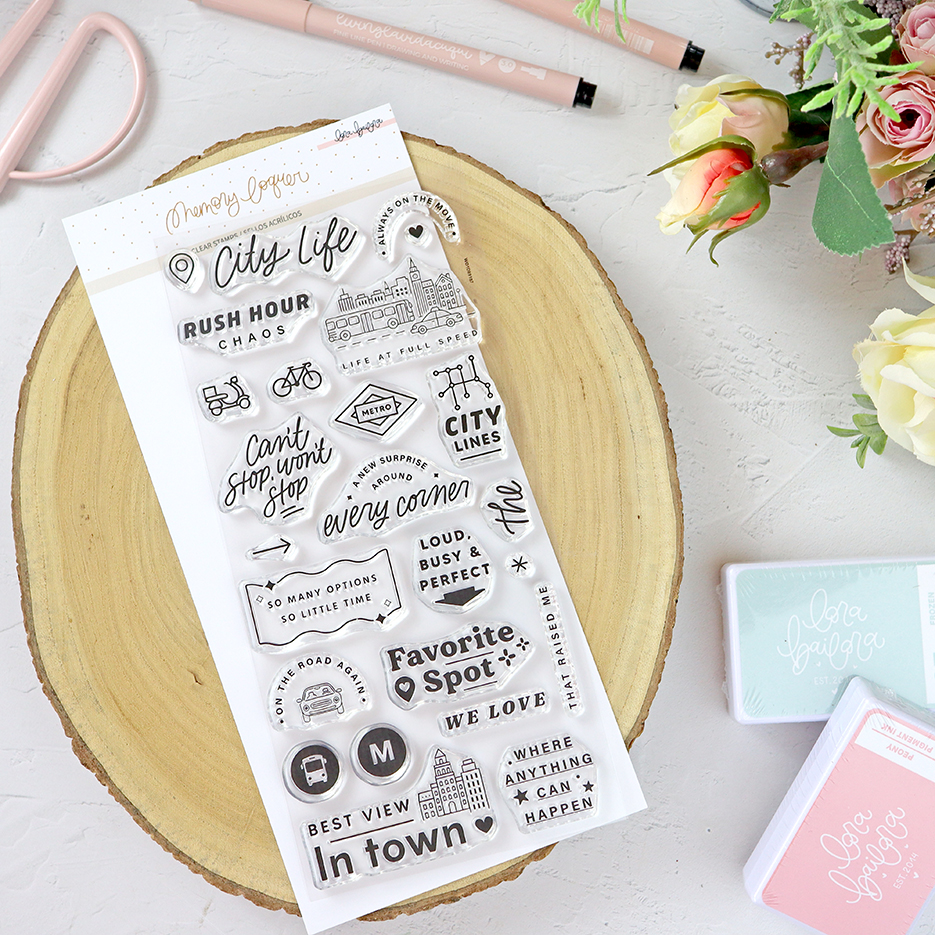 livinglavidacuqui
FINE LINE PEN | DRAWING AND WRITING
lora bailora
Memory loquer
CLEAR STAMPS / SELLOS ACRÍLICOS
ALWAYS ON THE MOVE
City Life
RUSH HOUR
CHAOS
LIFE AT FULL SPEED
METRO
CITY
LINES
Can't
stop, won't
stop
A NEW SURPRISE
AROUND
every corner
the
LOUD,
BUSY &
PERFECT
SO MANY OPTIONS
SO LITTLE TIME
THAT RAISED ME
Favorite
Spot
ON THE ROAD AGAIN
WE LOVE
M
WHERE
ANYTHING
CAN
HAPPEN
BEST VIEW
In town
lora
bailora
EST. 2014
FROZEN
PEONY
PIGMENT INK
lora
bailora
EST. 2014